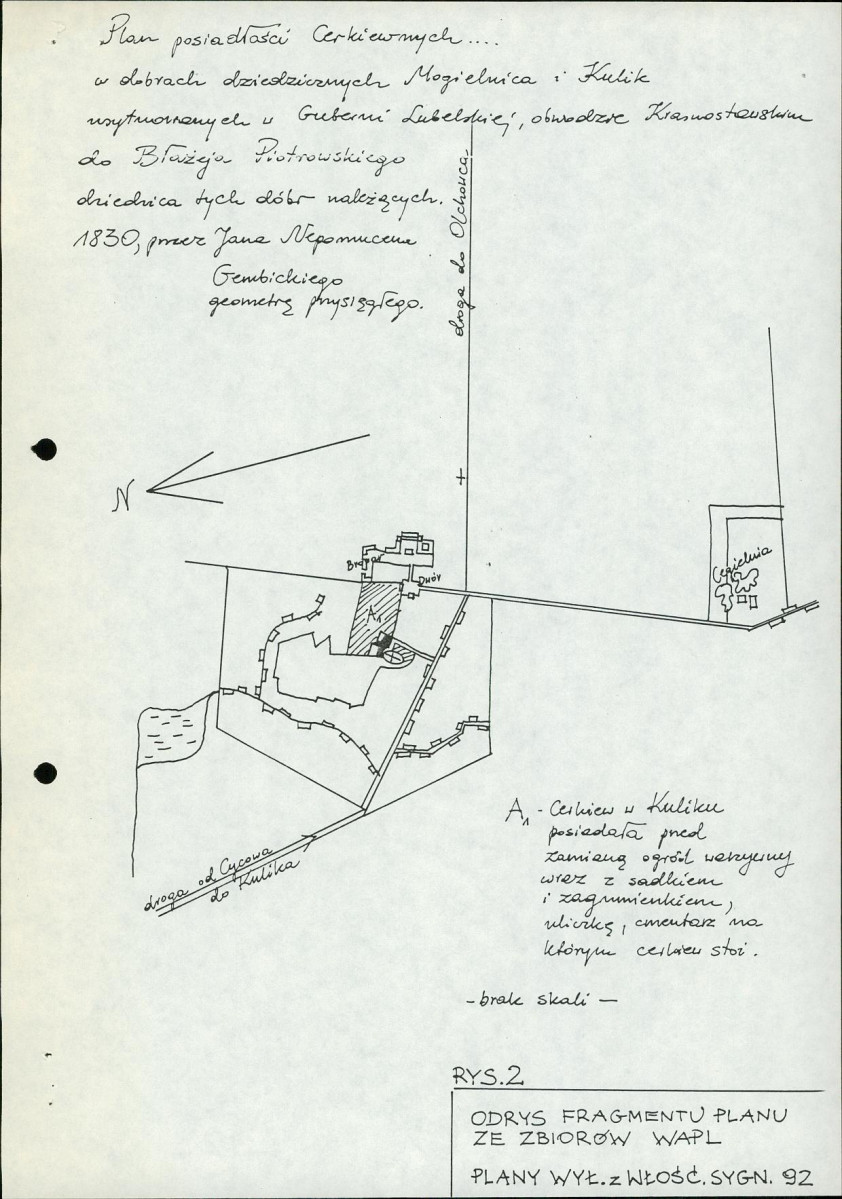 Plan posiadłości Cerkiewnych....
w dobrach dziedzicznych Mogielnica i Kulik
usytuowanych w Guberni Lubelskiej, obwodzie Krasnostawskim
do Błażeja Piotrowskiego
dziedzica tych dóbr należących.
1830, przez Jana Nepomucena
Gembickiego
geometrę przysięgłego.
droga do Olchowca
N
Browar
Dwór
A1
Cegielnia
droga od Cycowa
do Kulika
A1 - Cerkiew w Kuliku
posiadała pred
zamianą ogród warzywny
wraz z sadkiem
i zagumienkiem,
uliczkę, cmentarz na
którym cerkiew stoi.
- brak skali -
RYS.2
ODRYS FRAGMENTU PLANU
ZE ZBIORÓW WAPL
PLANY WYŁ. z WŁOŚĆ. SYGN. 92